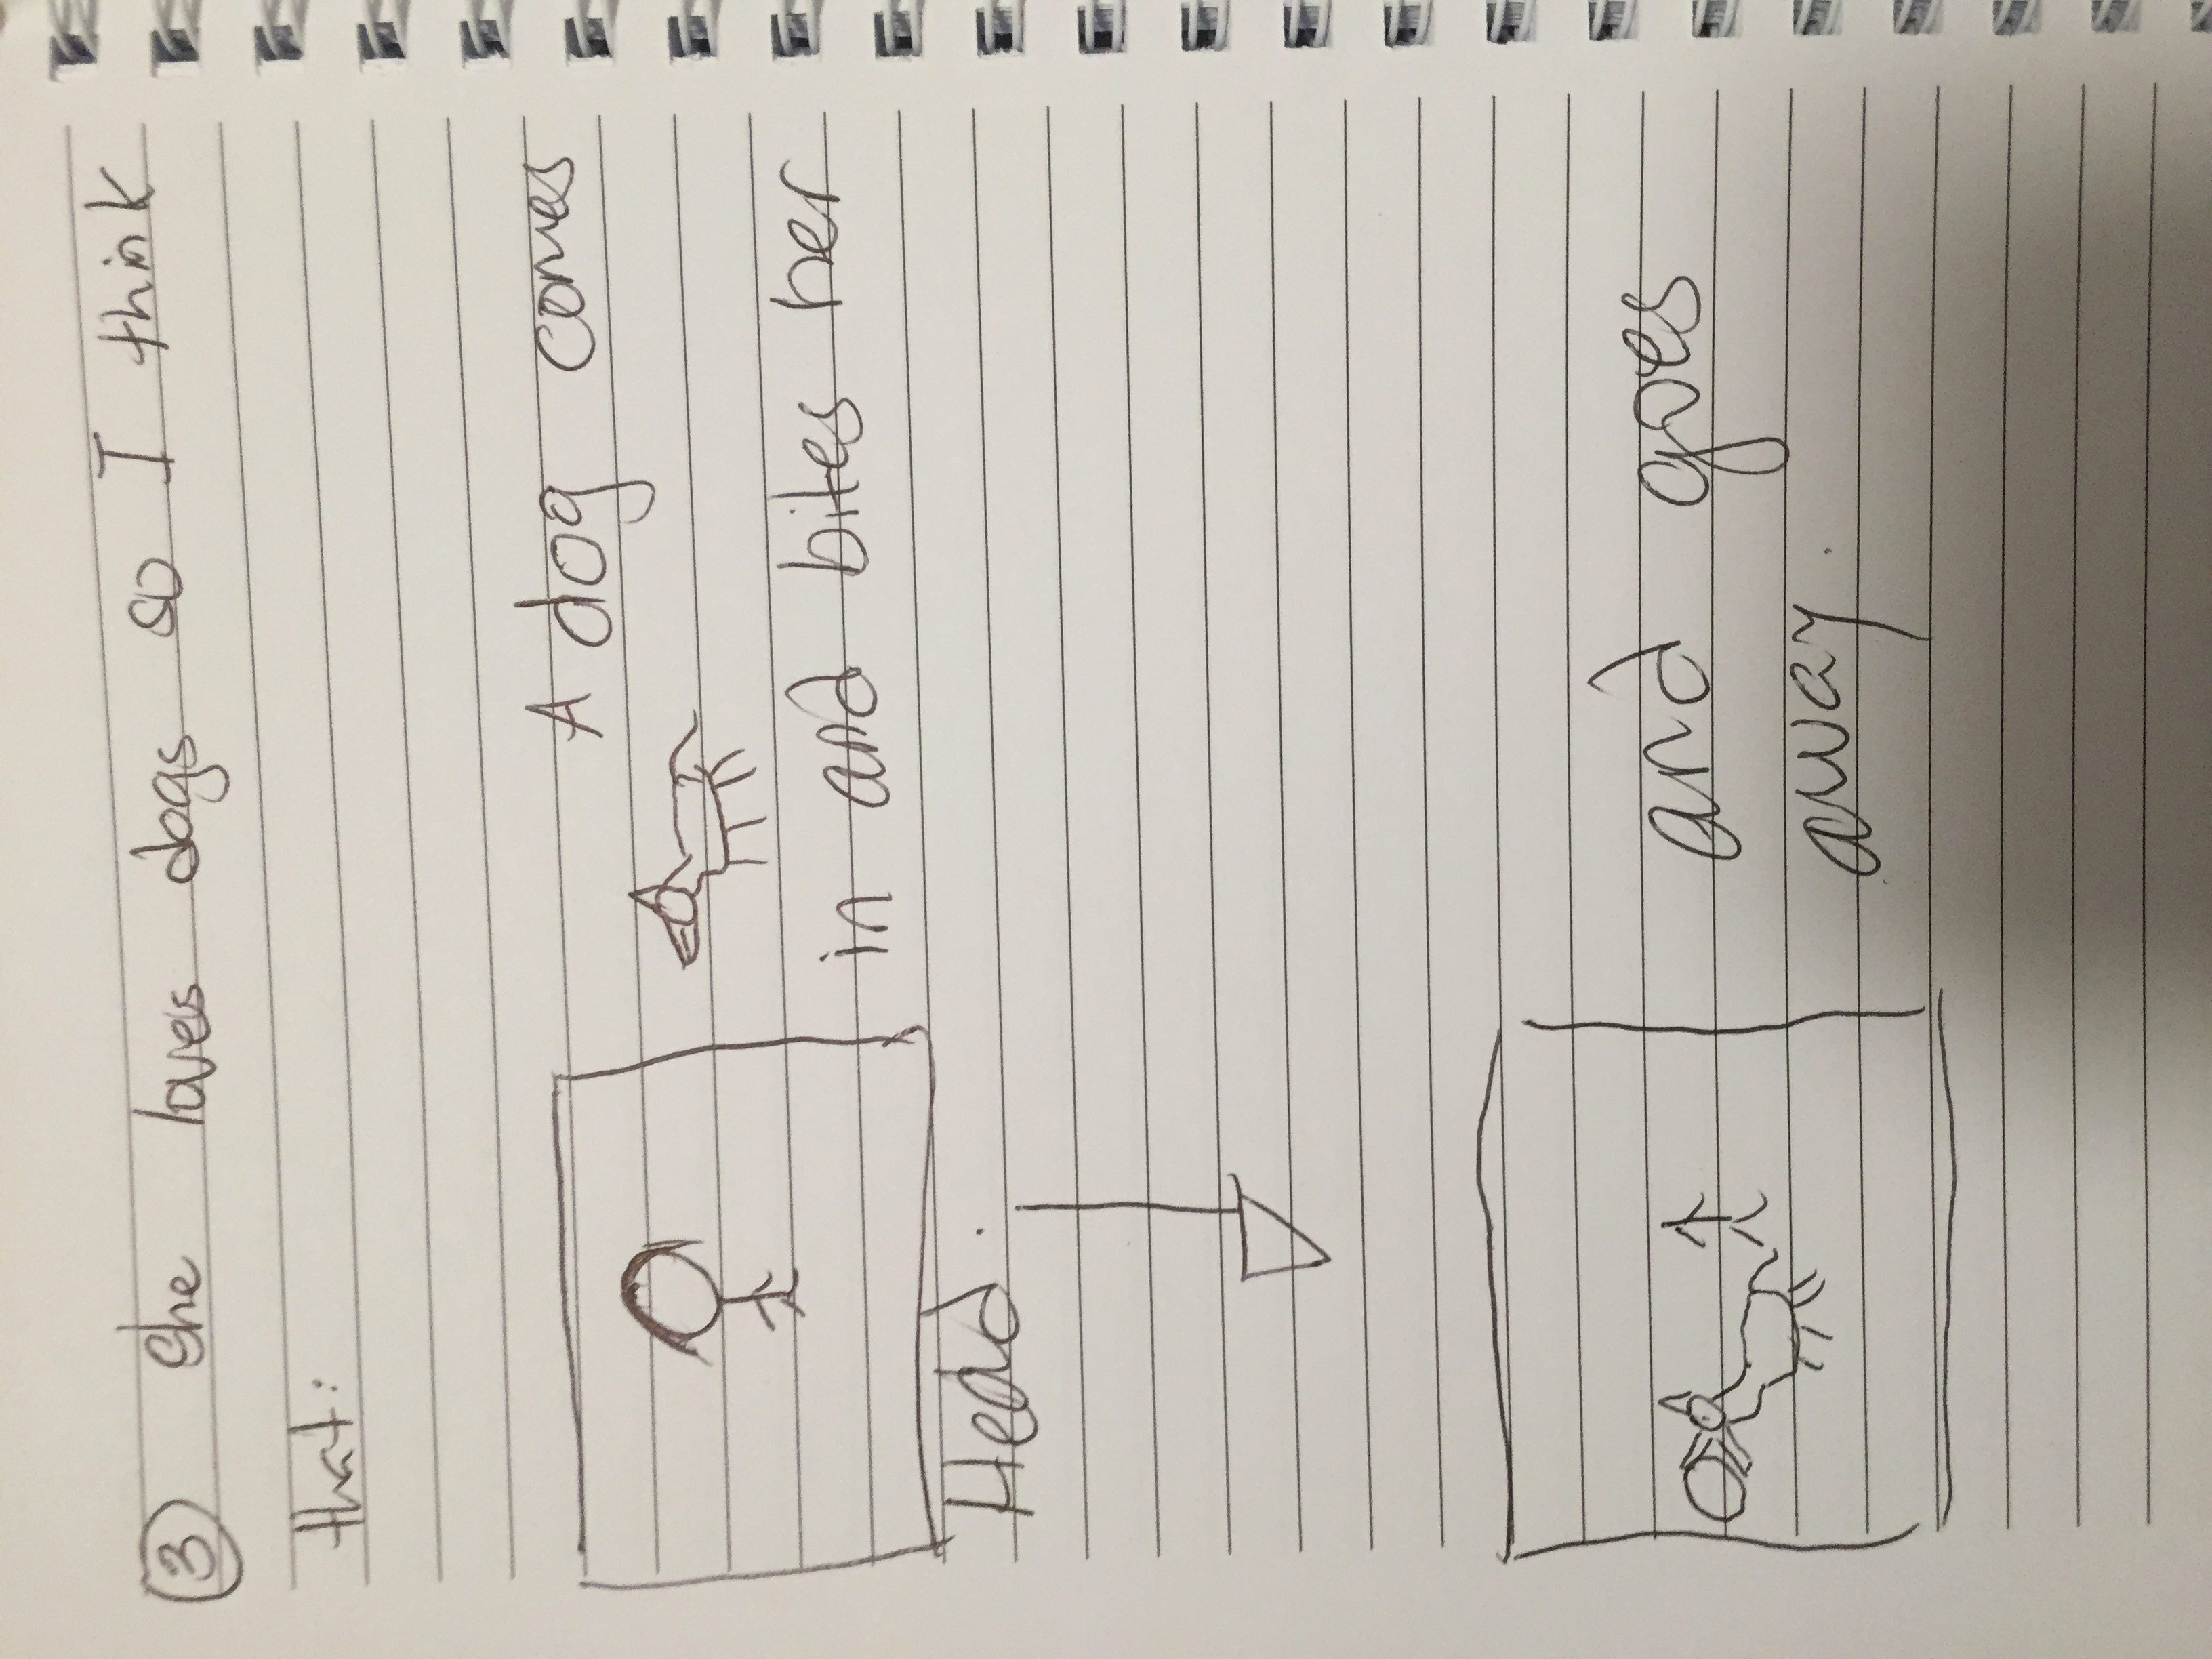 3 She loves dogs so I think
that:
A dog comes
in and bites her
Head.
and goes
away.